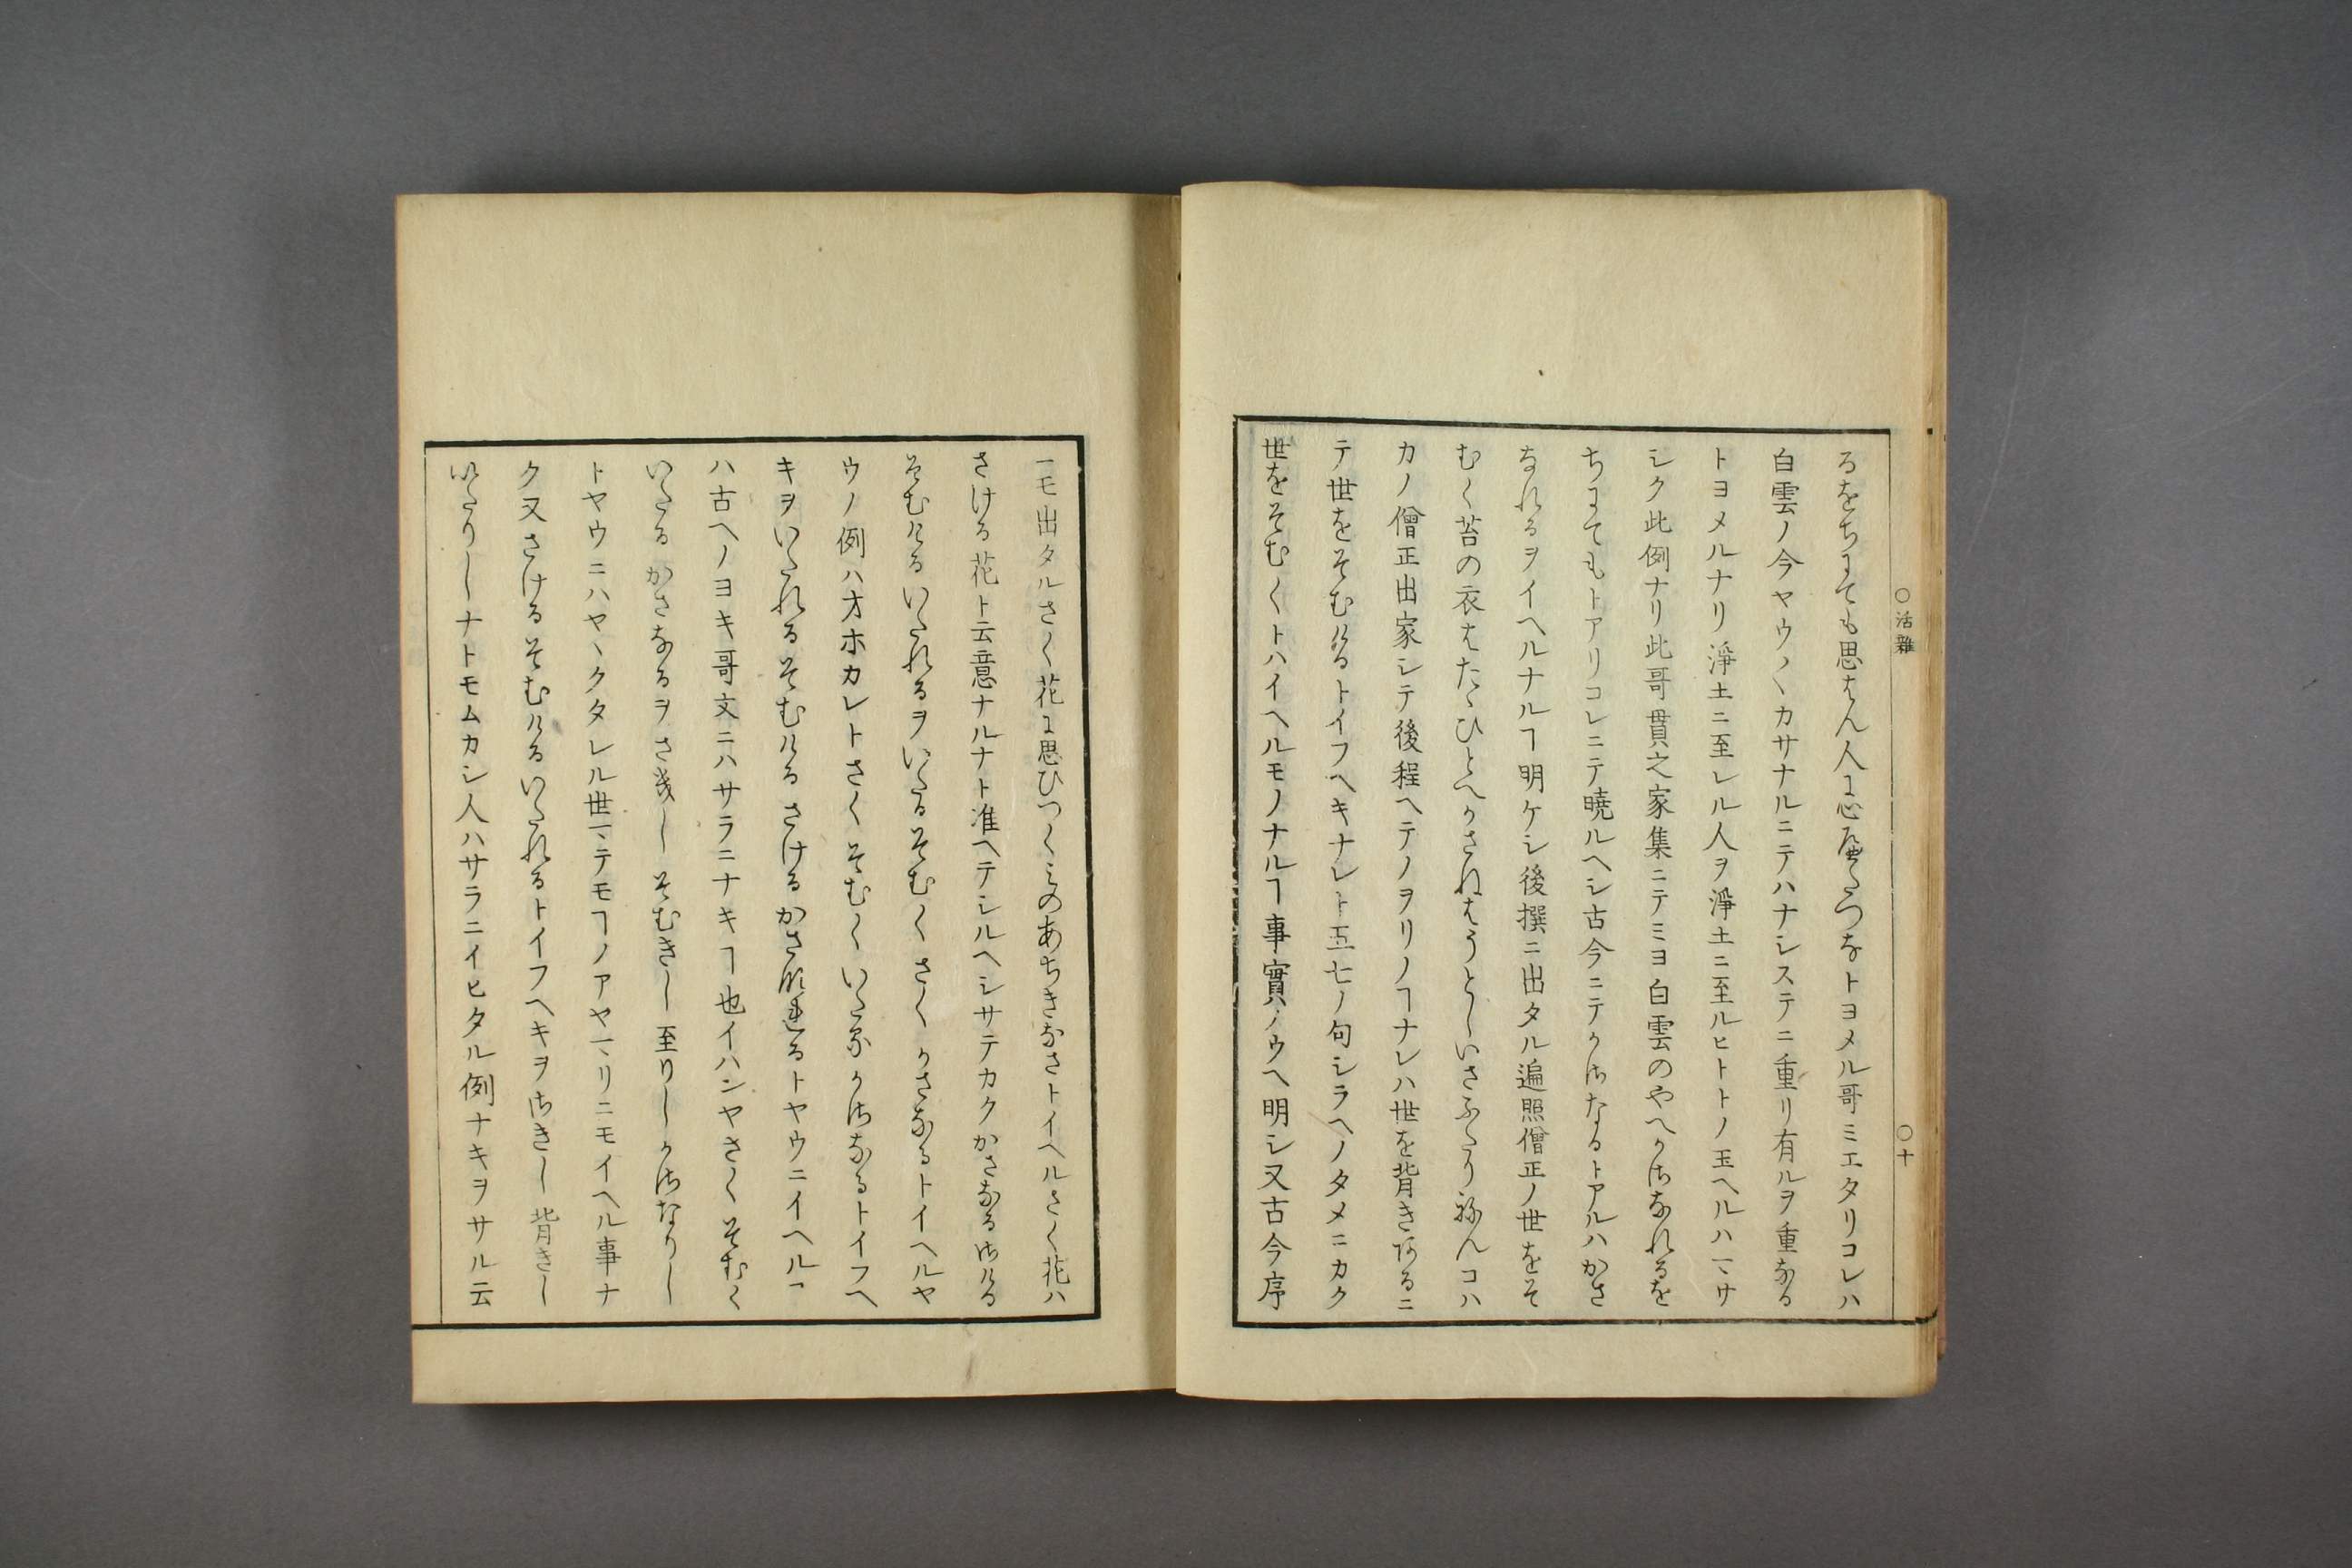 ろをちにても思はん人に心へだつなトヨメル哥ミエタリコレハ
白雲ノ今ヤウ〱カサナルニテハナシステニ重リ有ルヲ重なる
トヨメルナリ淨土ニ至レル人ヲ淨土ニ至ルヒトトノ玉ヘルハマサ
シク此例ナリ此哥貫之家集ニテミヨ白雲のやへかさなれるを
ちにてもトアリコレニテ曉ルヘシ古今ニテかさなるトアルハかさ
なれるヲイヘルナルヿ明ケシ後撰ニ出タル遍照僧正ノ世をそ
むく苔の衣はたゝひとへかさねはうとしいさふたりねんコハ
カノ僧正出家シテ後程ヘテノヲリノヿナレハ世を背きたるニ
テ世をそむけるトイフヘキナレト五七ノ句シラヘノタメニカク
世をそむくトハイヘルモノナルヿ事實ノウヘ明シ又古今序
〇活雜
〇十
ニモ出タルさく花に思ひつくみのあちきなさトイヘルさく花ハ
さける花ト云意ナルナト准ヘテシルヘシサテカクかさなるさける
そむける いたれるヲいたる そむく さく かさなるトイヘルヤ
ウノ例ハオホカレトさく そむく いたる かさなるトイフヘ
キヲいたれる そむける さける かさなれるトヤウニイヘルヿ
ハ古ヘノヨキ哥文ニハサラニナキヿ也イハンヤさく そむく
いたる かさなるヲさきし そむきし 至りし かさなりし
トヤウニハヤヽクタレル世マテモヿノアヤマリニモイヘル事ナ
ク又さける そむける いたれるトイフヘキヲさきし 背きし
いたりしナトモムカシ人ハサラニイヒタル例ナキヲサル云